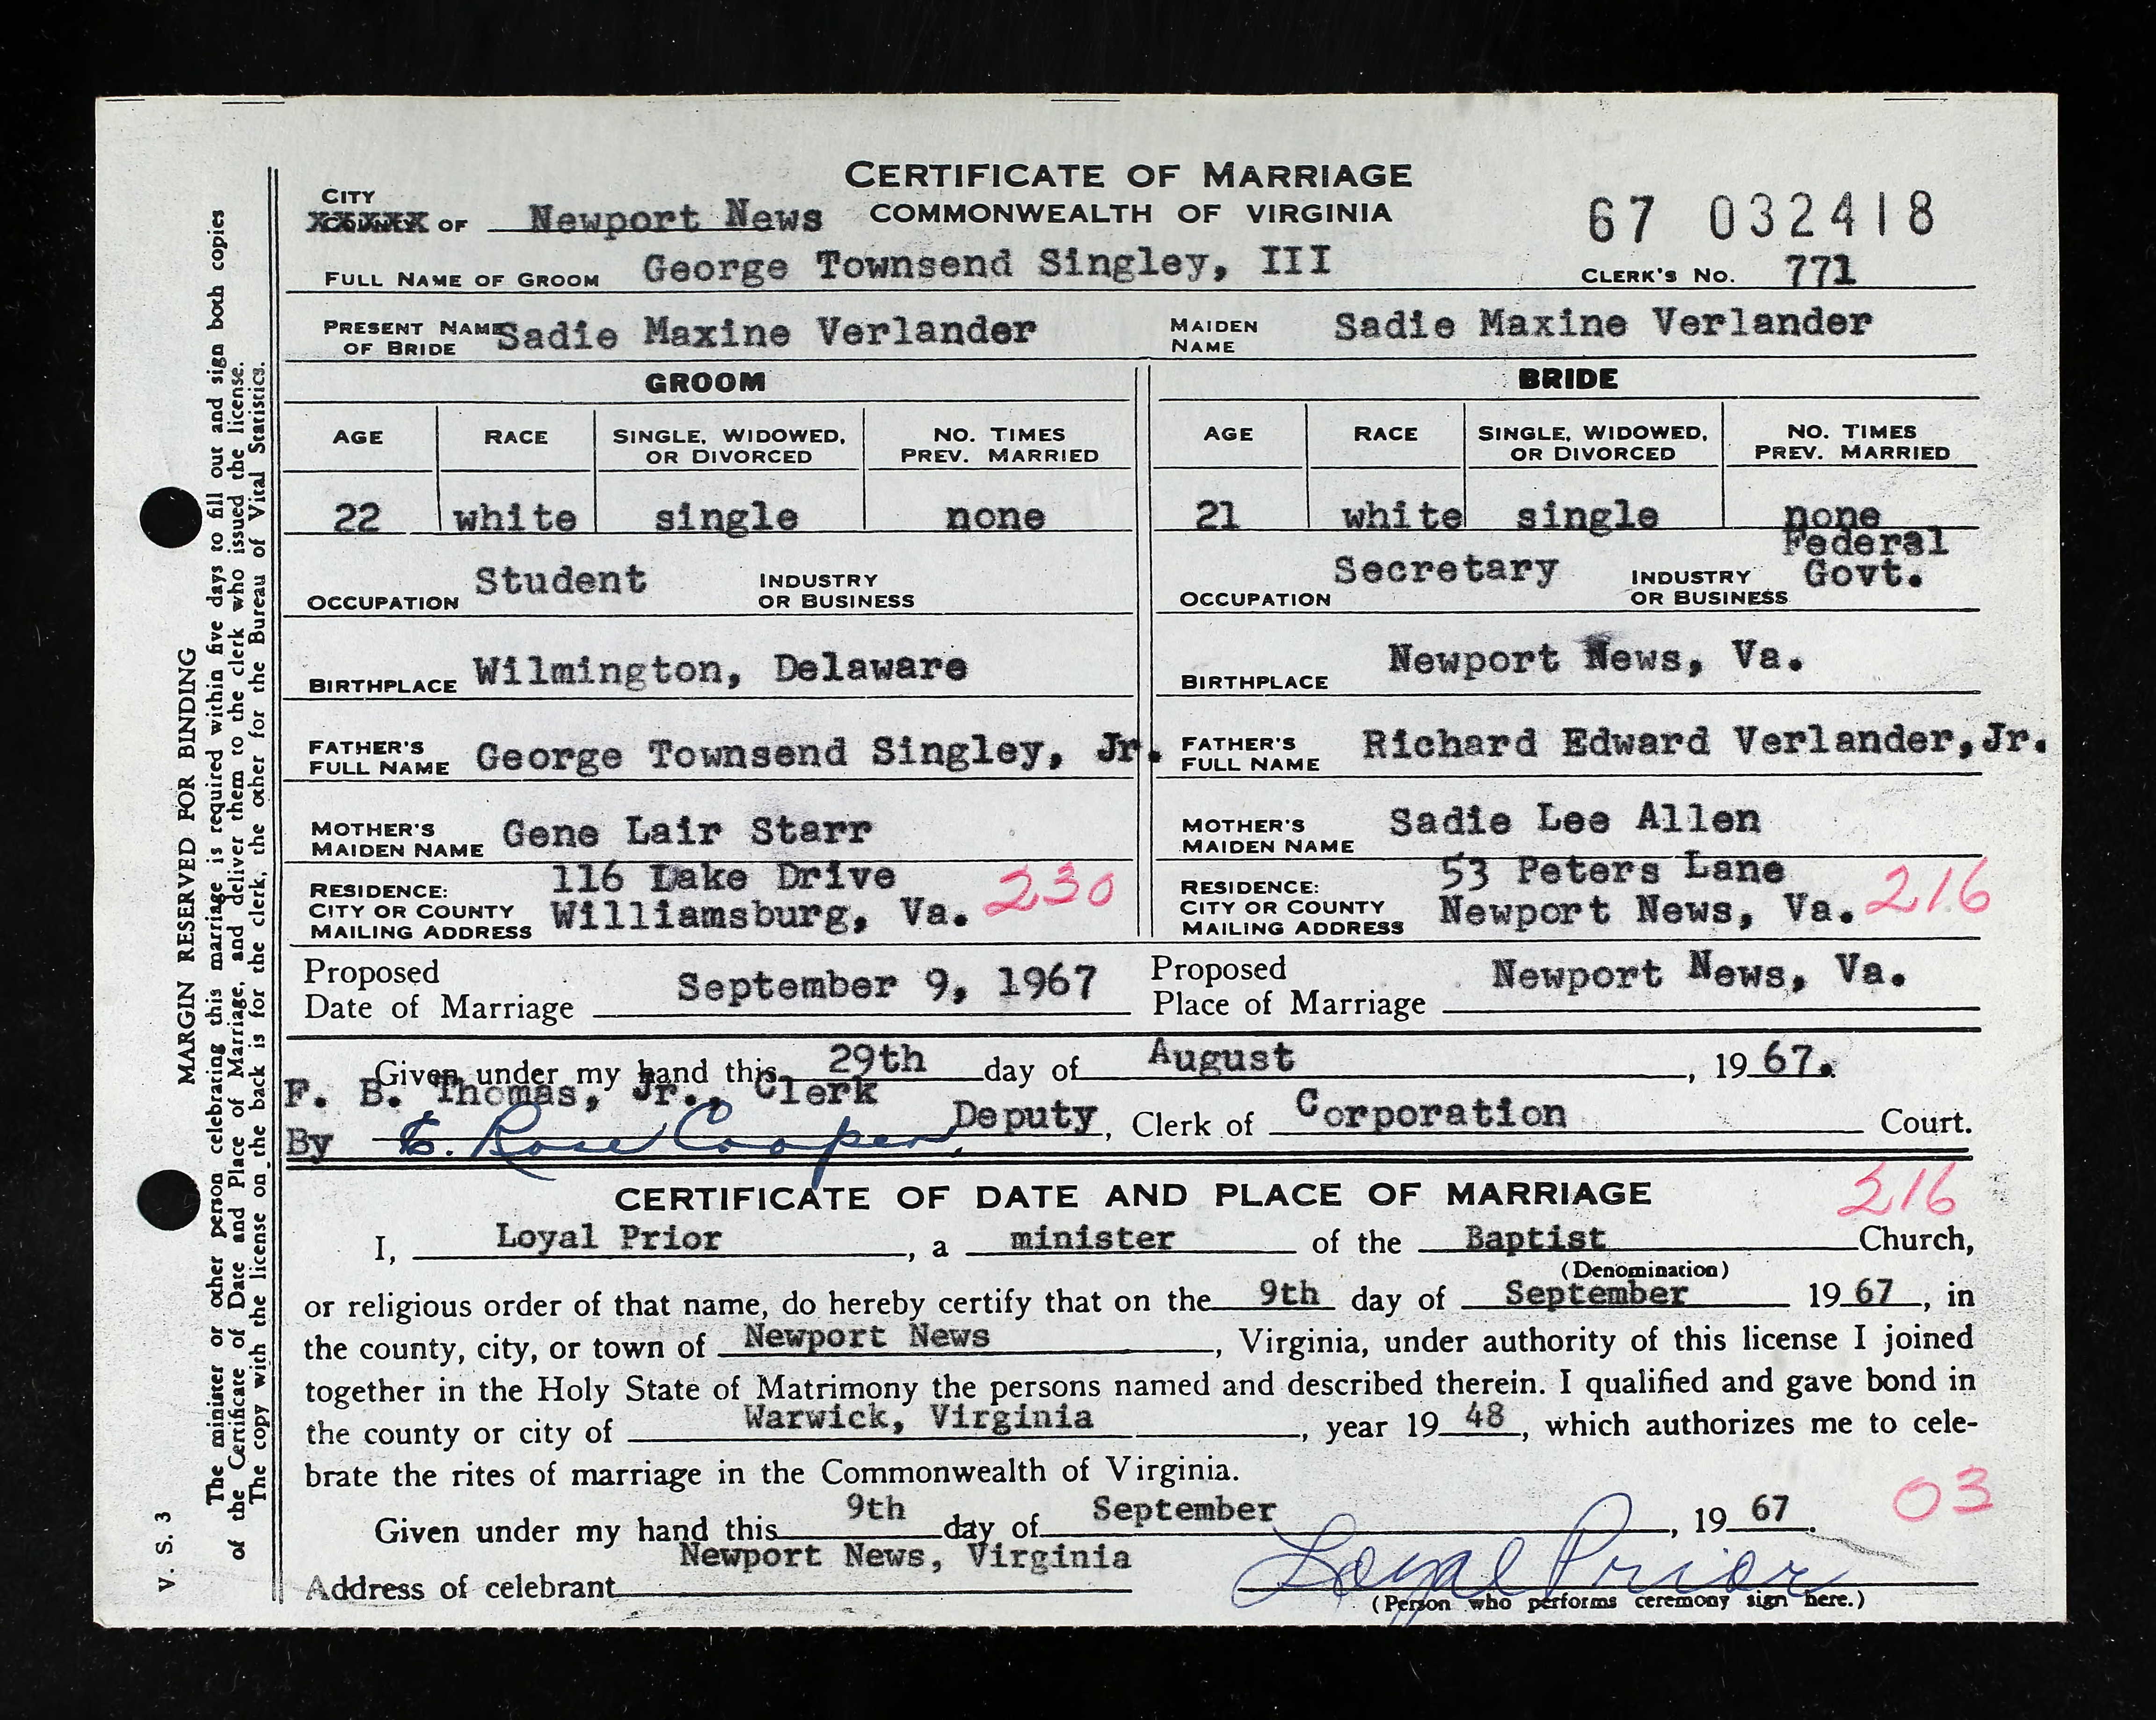 CERTIFICATE OF MARRIAGE
COMMONWEALTH OF VIRGINIA
CITY
OF Newport News
67 032418
FULL NAME OF GROOM George Townsend Singley, III
CLERK'S NO. 771
PRESENT NAME OF BRIDE Sadie Maxine Verlander
MAIDEN NAME Sadie Maxine Verlander
GROOM
AGE RACE SINGLE, WIDOWED, OR DIVORCED NO. TIMES PREV. MARRIED
22 white single none
OCCUPATION Student INDUSTRY OR BUSINESS
BIRTHPLACE Wilmington, Delaware
FATHER'S FULL NAME George Townsend Singley, Jr.
MOTHER'S MAIDEN NAME Gene Lair Starr
RESIDENCE: 116 Lake Drive
CITY OR COUNTY Williamsburg, Va. 230
MAILING ADDRESS
BRIDE
AGE RACE SINGLE, WIDOWED, OR DIVORCED NO. TIMES PREV. MARRIED
21 white single none
OCCUPATION Secretary INDUSTRY OR BUSINESS Federal Govt.
BIRTHPLACE Newport News, Va.
FATHER'S FULL NAME Richard Edward Verlander, Jr.
MOTHER'S MAIDEN NAME Sadie Lee Allen
RESIDENCE: 53 Peters Lane
CITY OR COUNTY Newport News, Va. 216
MAILING ADDRESS
Proposed Date of Marriage September 9, 1967
Proposed Place of Marriage Newport News, Va.
Given under my hand this 29th day of August, 19 67.
F. B. Thomas, Jr., Clerk
By E. Rose Cooper, Deputy, Clerk of Corporation Court.
CERTIFICATE OF DATE AND PLACE OF MARRIAGE 216
I, Loyal Prior, a minister of the Baptist Church,
(Denomination)
or religious order of that name, do hereby certify that on the 9th day of September 19 67, in
the county, city, or town of Newport News, Virginia, under authority of this license I joined
together in the Holy State of Matrimony the persons named and described therein. I qualified and gave bond in
the county or city of Warwick, Virginia, year 19 48, which authorizes me to cele-
brate the rites of marriage in the Commonwealth of Virginia.
03
Given under my hand this 9th day of September, 19 67.
Address of celebrant Newport News, Virginia
Loyal Prior
(Person who performs ceremony sign here.)
V. S. 3
MARGIN RESERVED FOR BINDING
The minister or other person celebrating this marriage is required within five days to fill out and sign both copies
of the Certificate of Date and Place of Marriage, and deliver them to the clerk who issued the license.
The copy with the license on the back is for the clerk, the other for the Bureau of Vital Statistics.